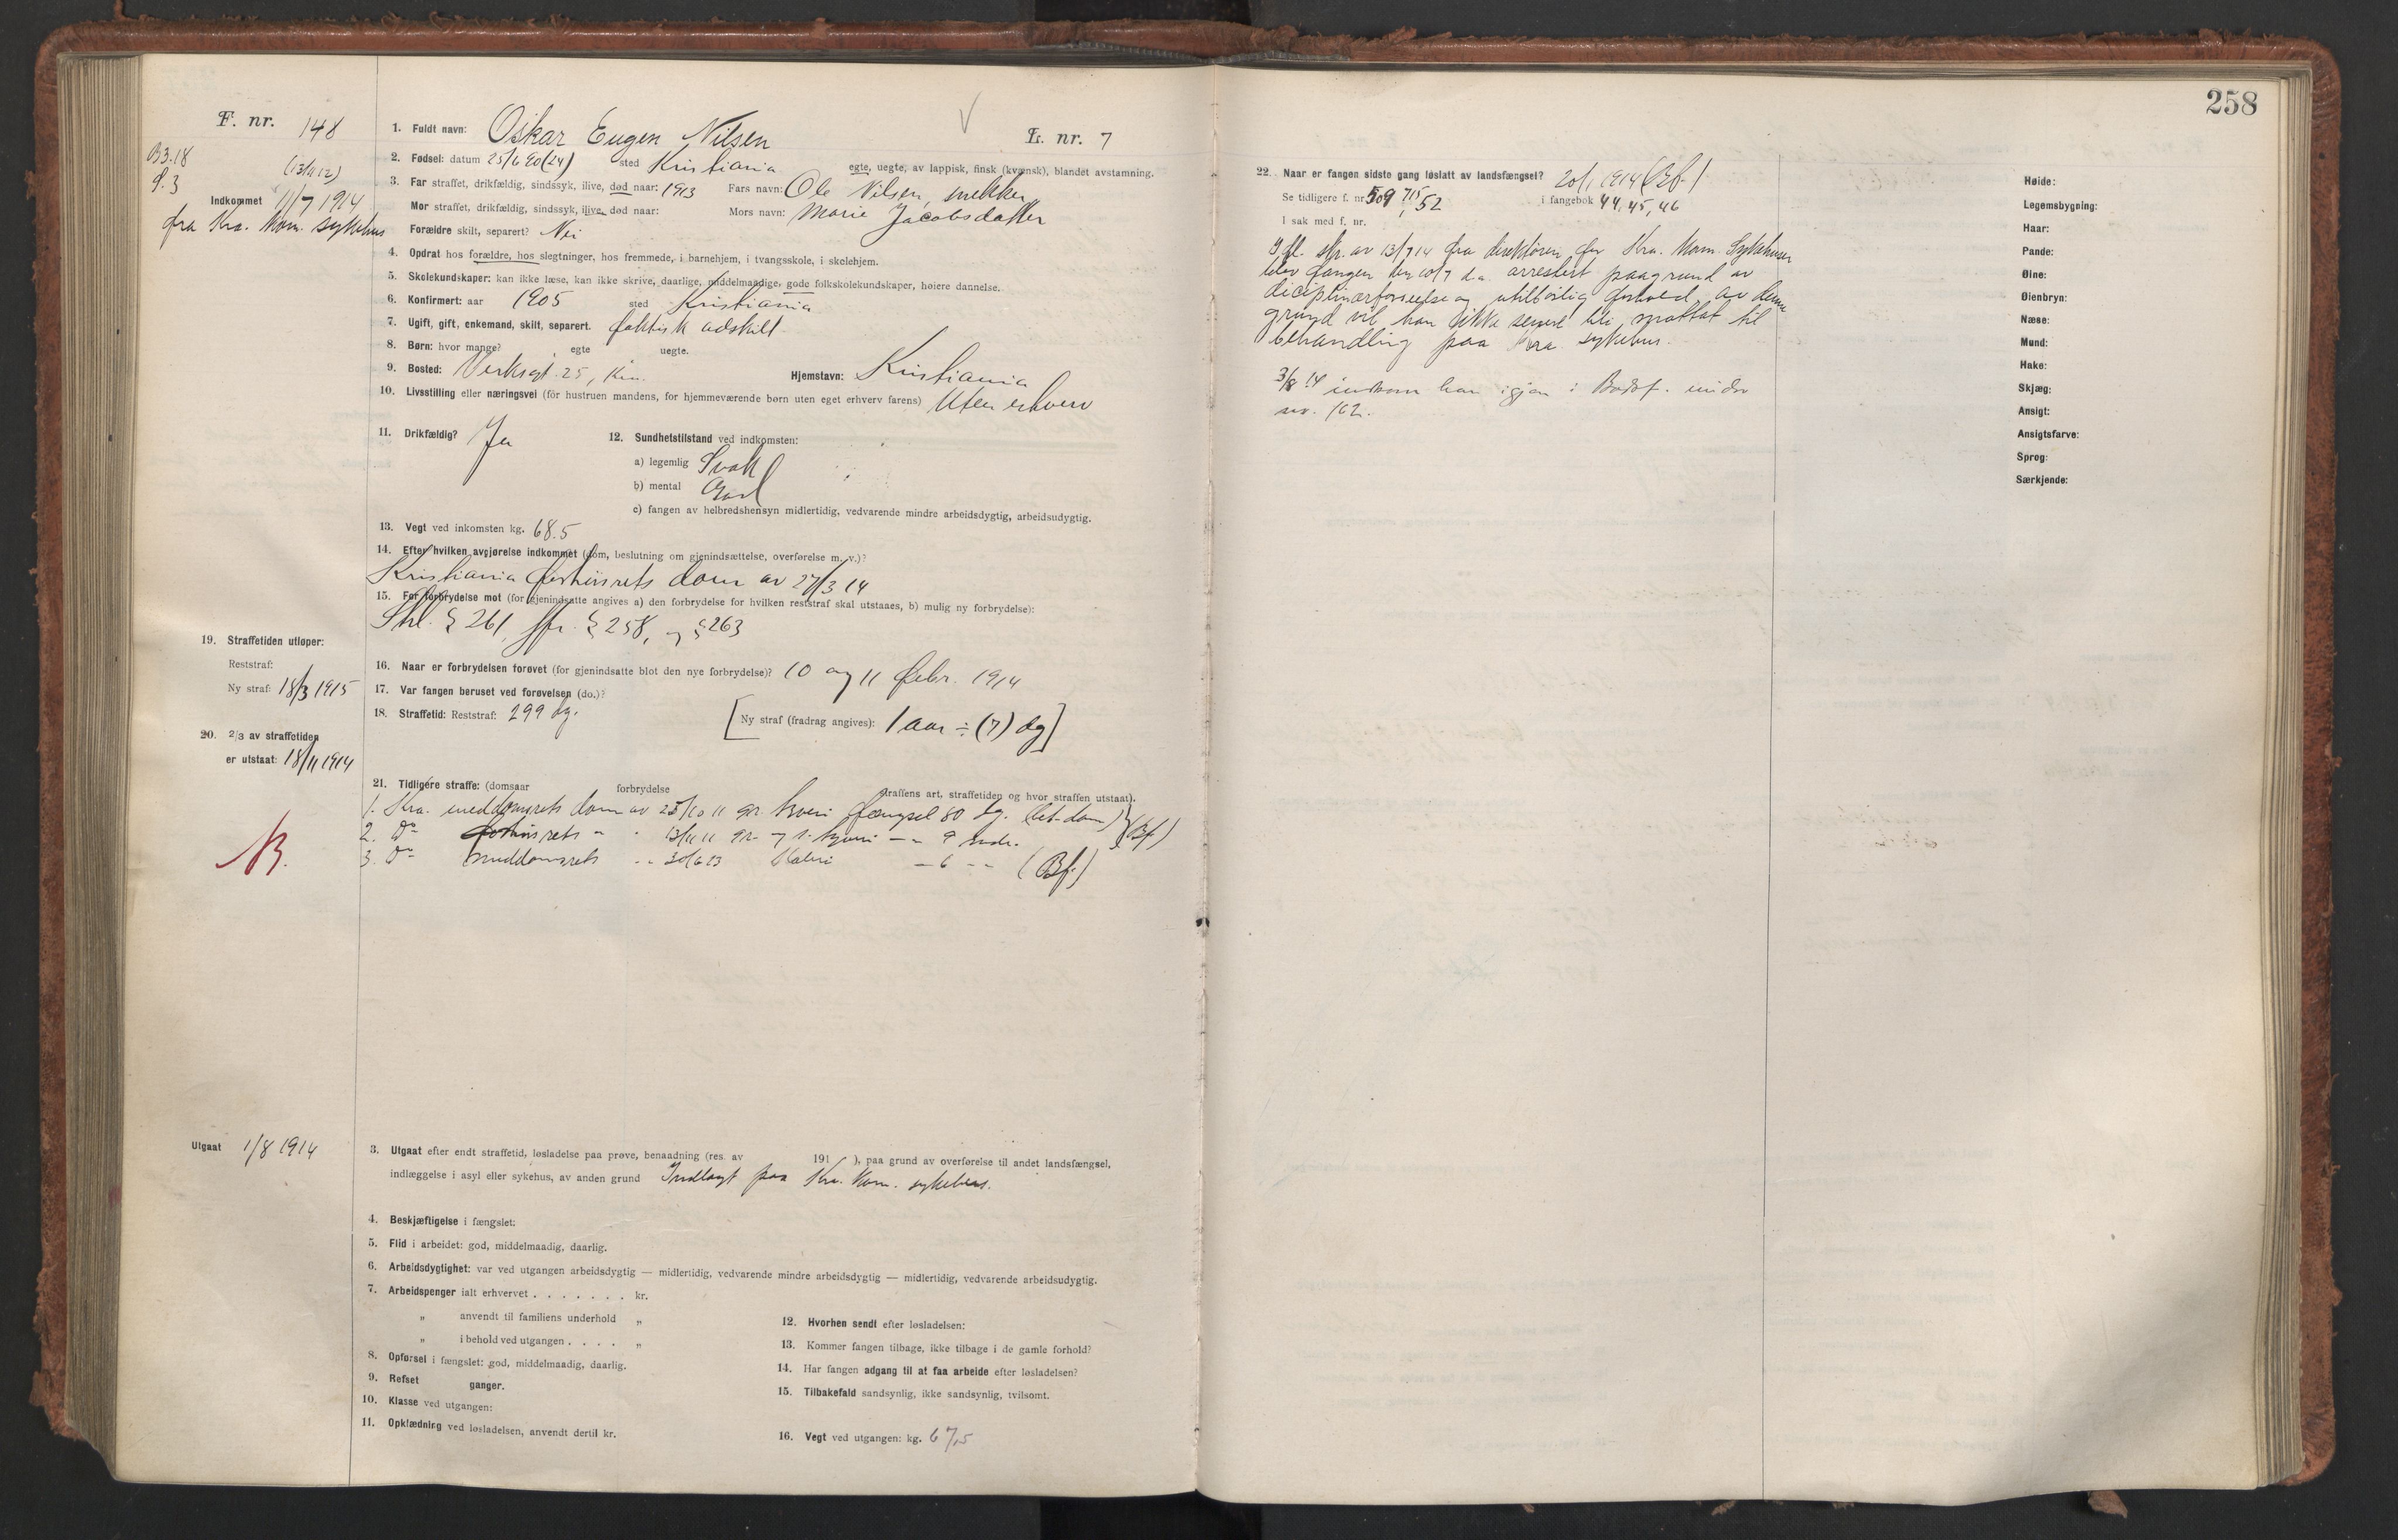 F. nr. 148
B3.18
P.3
(13/11 12)
Indkommet 11/7 1914
fra Kra. Kom. sykehus
L. nr. 7
1. Fuldt navn: Oskar Eugen Nilsen
2. Fødsel: datum 25/6 90 (24) sted Kristiania egte, uegte, av lappisk, finsk (kvænsk), blandet avstamning.
3. Far straffet, drikfældig, sindssyk, ilive, død naar: 1913 Fars navn: Ole Nilsen, snekker
Mor straffet, drikfældig, sindssyk, ilive, død naar: Mors navn: Marie Jacobsdatter
Forældre skilt, separert? Nei
4. Opdrat hos forældre, hos slegtninger, hos fremmede, i barnehjem, i tvangsskole, i skolehjem.
5. Skolekundskaper: kan ikke læse, kan ikke skrive, daarlige, middelmaadige, gode folkskolekundskaper, høiere dannelse.
6. Konfirmert: aar 1905 sted Kristiania
7. Ugift, gift, enkemand, skilt, separert. faktisk adskilt
8. Børn: hvor mange? egte uegte.
9. Bosted: Verksgt. 25, Kra. Hjemstavn: Kristiania
10. Livsstilling eller næringsvei (for hustruen mandens, for hjemmeværende børn uten eget erhverv farens) Uten erhverv
11. Drikfældig? Ja
12. Sundhetstilstand ved indkomsten:
a) legemlig Svak
b) mental God
c) fangen av helbredshensyn midlertidig, vedvarende mindre arbeidsdygtig, arbeidsudygtig.
13. Vegt ved inkomsten kg. 68.5
14. Efter hvilken avgjørelse indkommet (dom, beslutning om gjenindsættelse, overførelse m. v.)?
Kristiania forhørsrets dom av 27/3 14
15. For forbrydelse mot (for gjenindsatte angives a) den forbrydelse for hvilken reststraf skal utstaaes, b) mulig ny forbrydelse):
Strl. § 261, jfr. § 258, og § 263
16. Naar er forbrydelsen forøvet (for gjenindsatte blot den nye forbrydelse)? 10 og 11 febr. 1914
17. Var fangen beruset ved forøvelsen (do.)?
18. Straffetid: Reststraf: 299 dg. [Ny straf (fradrag angives): 1 aar ÷ (7) dg]
19. Straffetiden utløper:
Reststraf:
Ny straf: 18/3 1915
20. 2/3 av straffetiden
er utstaat: 18/11 1914
21. Tidligere straffe: (domsaar forbrydelse straffens art, straffetiden og hvor straffen utstaat).
1. Kra. meddomsrets dom av 25/10 11 gr. tyveri fængsel 80 dg. (bet. dom)
2. Do forhørsrets " " 13/11 11 gr. og s. tyveri — " 9 mdr. (Bf)
3. Do meddomsrets " " 30/6 13 Hæleri — 6 — " (Bf.)
Utgaat 1/8 1914
3. Utgaat efter endt straffetid, løsladelse paa prøve, benaadning (res. av 191 ), paa grund av overførelse til andet landsfængsel,
indlæggelse i asyl eller sykehus, av anden grund Indlagt paa Kra. Kom. sykehus.
4. Beskjæftigelse i fængslet:
5. Flid i arbeidet: god, middelmaadig, daarlig.
6. Arbeidsdygtighet: var ved utgangen arbeidsdygtig — midlertidig, vedvarende mindre arbeidsdygtig — midlertidig, vedvarende arbeidsudygtig.
7. Arbeidspenger ialt erhvervet . . . . . . . kr.
" anvendt til familiens underhold "
" i behold ved utgangen . . . . "
8. Opførsel i fængslet: god, middelmaadig, daarlig.
9. Refset ganger.
10. Klasse ved utgangen:
11. Opklædning ved løsladelsen, anvendt dertil kr.
12. Hvorhen sendt efter løsladelsen:
13. Kommer fangen tilbage, ikke tilbage i de gamle forhold?
14. Har fangen adgang til at faa arbeide efter løsladelsen?
15. Tilbakefald sandsynlig, ikke sandsynlig, tvilsomt.
16. Vegt ved utgangen: kg. 67,5
258
22. Naar er fangen sidste gang løslatt av landsfængsel? 20/1 1914 (Bf.)
Se tidligere f. nr. 509, 715, 52 i fangebok 44, 45, 46
I sak med f. nr.
Ifl. skr. av 13/7 14 fra direktøren for Kra. Kom. Sykehuser
blev fangen den 10/7 d.a. arrestert paagrund av
diciplinærforseelse og utilbørlig forhold. Av denne
grund vil han ikke senere bli mottat til
behandling paa Kra. sykehus.
3/8 14 indkom han igjen i Bodsf. under
nr. 162.
Høide:
Legemsbygning:
Haar:
Pande:
Øine:
Øienbryn:
Næse:
Mund:
Hake:
Skjæg:
Ansigt:
Ansigtsfarve:
Sprog:
Særkjende: